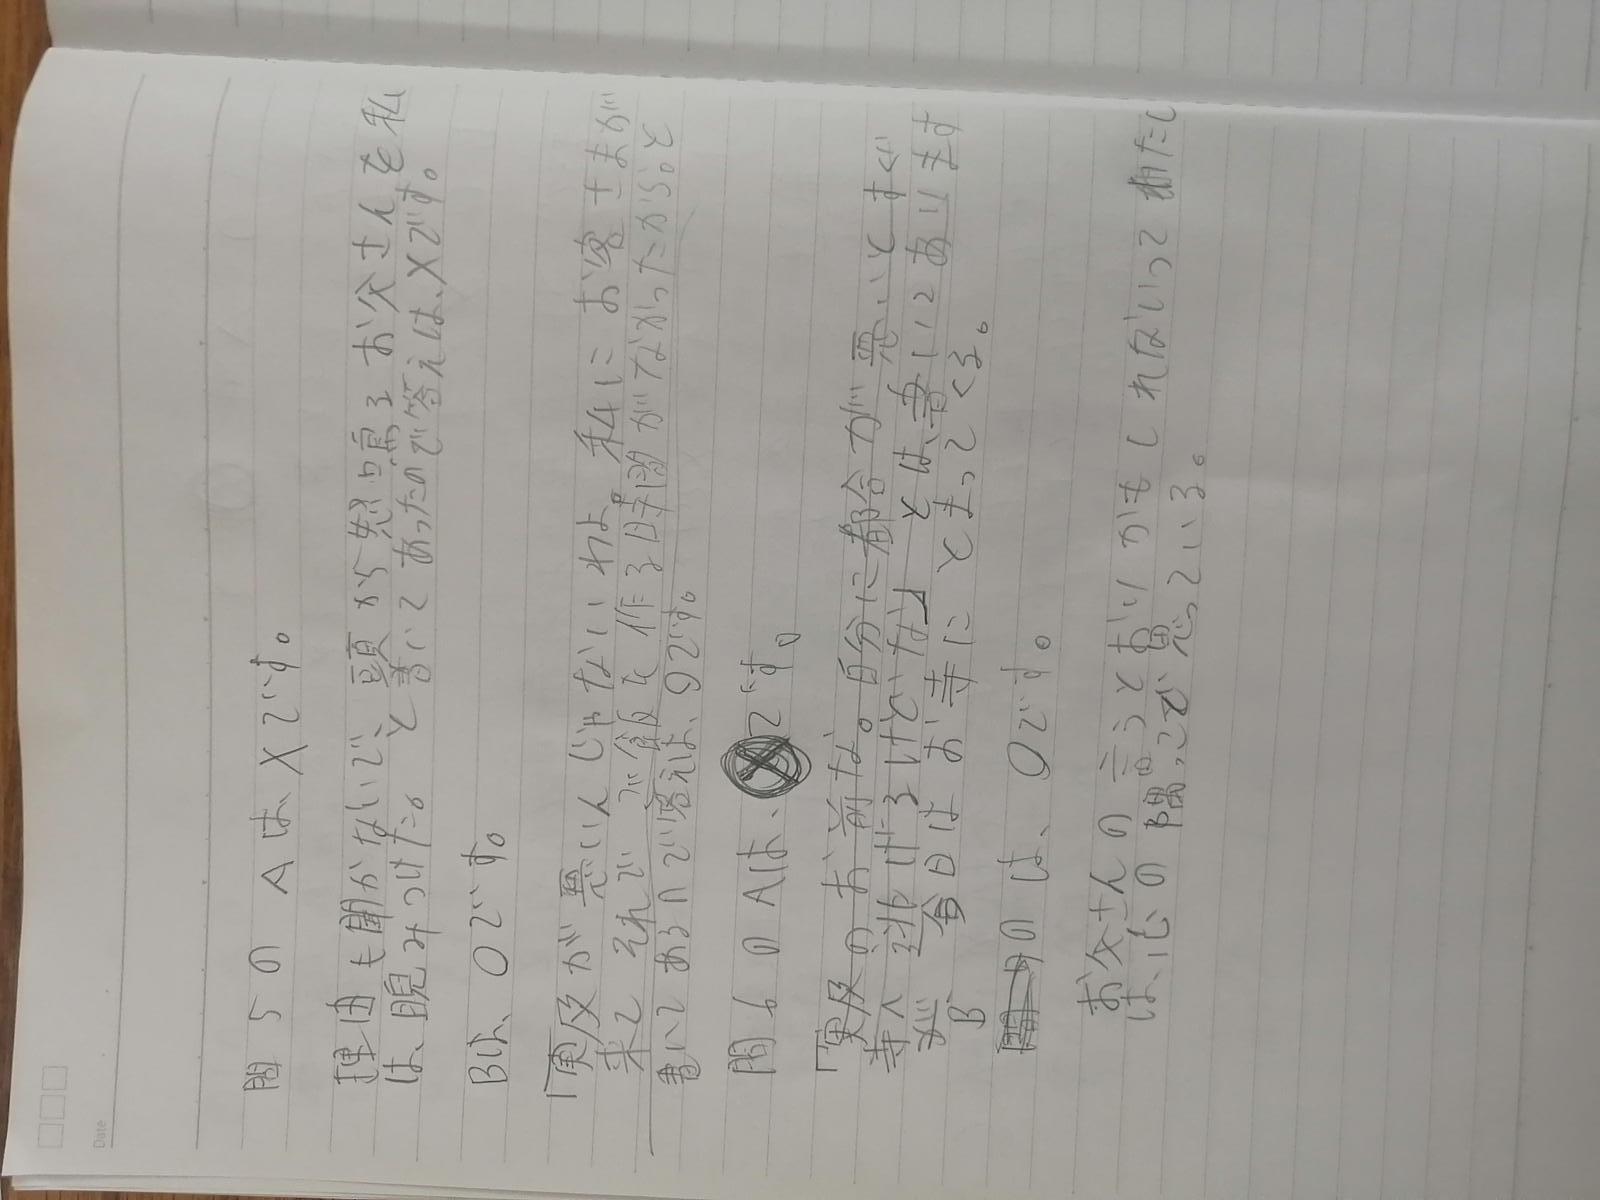 Date
問5の Aは、Xです。
理由も聞かないで、頭から怒鳴るお父さんを私
は、睨みつけた。と書いてあったので答えは、Xです。
Bは、0です。
「実反が悪いんじゃないわよ。私に お客さまが
来て それで ご飯を作る時間がなかったから。と
書いてあるので答えは、0です。
問6の Aは、です。
「実反のお前な。自分に都合が悪いとすぐ
寺へ逃げるけどな」とは、書いてあります
が 今日は お寺に とまってくる。
B
の は、0です。
お父さんの言うとおりかもしれないってわたし
は、心の隅っこで思っている。